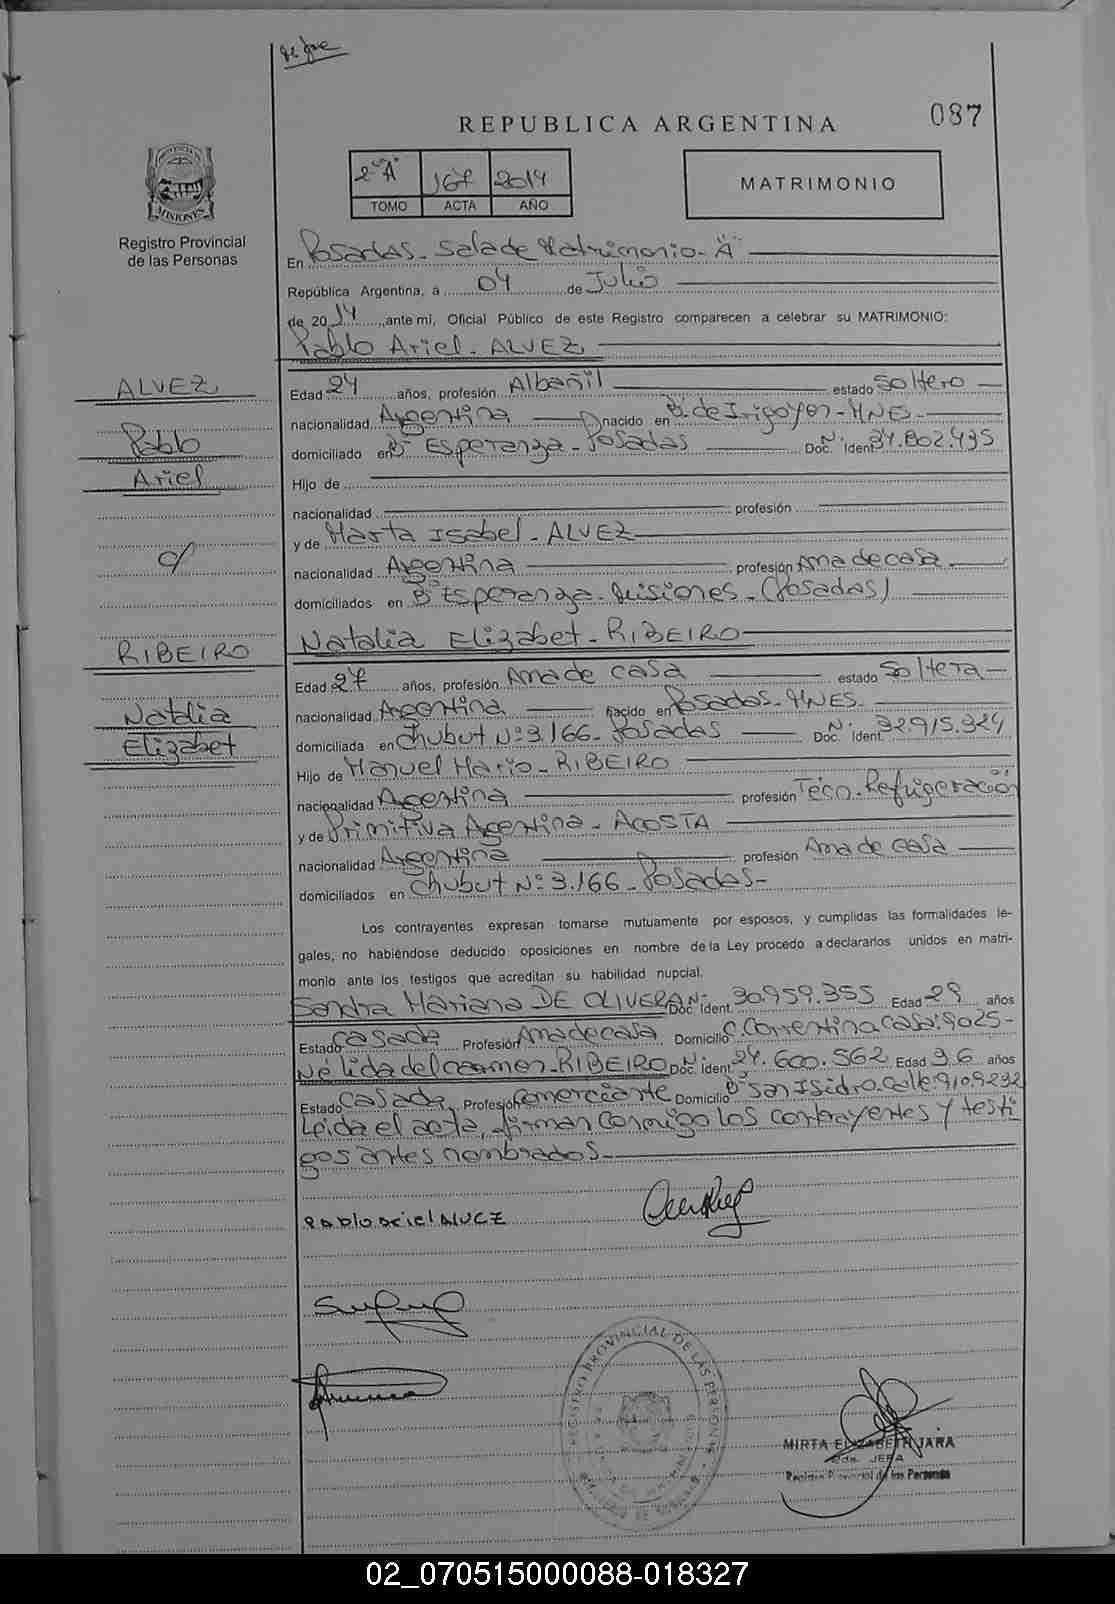 087
REPUBLICA ARGENTINA
2º "A" 167 2014
TOMO ACTA AÑO
MATRIMONIO
PROVINCIA DE MISIONES
Registro Provincial
de las Personas
En Posadas - Sala de Matrimonio - "A"
República Argentina, a 04 de Julio
de 2014 ,ante mi, Oficial Público de este Registro comparecen a celebrar su MATRIMONIO:
Pablo Ariel - ALVEZ
ALVEZ
Pablo
Ariel
c/
RIBEIRO
Natalia
Elizabet
Edad 24 años, profesión Albañil estado Soltero
nacionalidad Argentina nacido en B. de Irigoyen - MNES -
domiciliado en Bº Esperanza - Posadas Doc. Ident. Nº 34.802.435
Hijo de
nacionalidad profesión
y de Marta Isabel - ALVEZ
nacionalidad Argentina profesión Ama de casa
domiciliados en Bº Esperanza - Misiones - (Posadas)
Natalia Elizabet - RIBEIRO
Edad 27 años, profesión Ama de casa estado Soltera
nacionalidad Argentina nacido en Posadas - MNES -
domiciliada en Chubut Nº 3.166 - Posadas Doc. Ident. Nº 32.915.324
Hijo de Manuel Mario - RIBEIRO
nacionalidad Argentina profesión Técn. Refrigeración
y de Primitiva Argentina - ACOSTA
nacionalidad Argentina profesión Ama de casa
domiciliados en Chubut Nº 3.166 - Posadas -
Los contrayentes expresan tomarse mutuamente por esposos, y cumplidas las formalidades le-
gales, no habiéndose deducido oposiciones en nombre de la Ley procedo a declararlos unidos en matri-
monio ante los testigos que acreditan su habilidad nupcial.
Sandra Mariana DE OLIVERA Doc. Ident. Nº 30.959.355 Edad 29 años
Estado casada Profesión Ama de casa Domicilio C. Correntina casa: 9025 -
Nélida del carmen - RIBEIRO Doc. Ident. Nº 24.600.562 Edad 36 años
Estado casada Profesión comerciante Domicilio Bº San Isidro. Calle: 9109232
Leida el acta, firman conmigo los contrayentes y testi
gos antes nombrados -
Pablo Ariel ALVEZ
REGISTRO PROVINCIAL DE LAS PERSONAS
MIRTA ELIZABETH JARA
2da. JEFA
Registro Provincial de las Personas
02_070515000088-018327